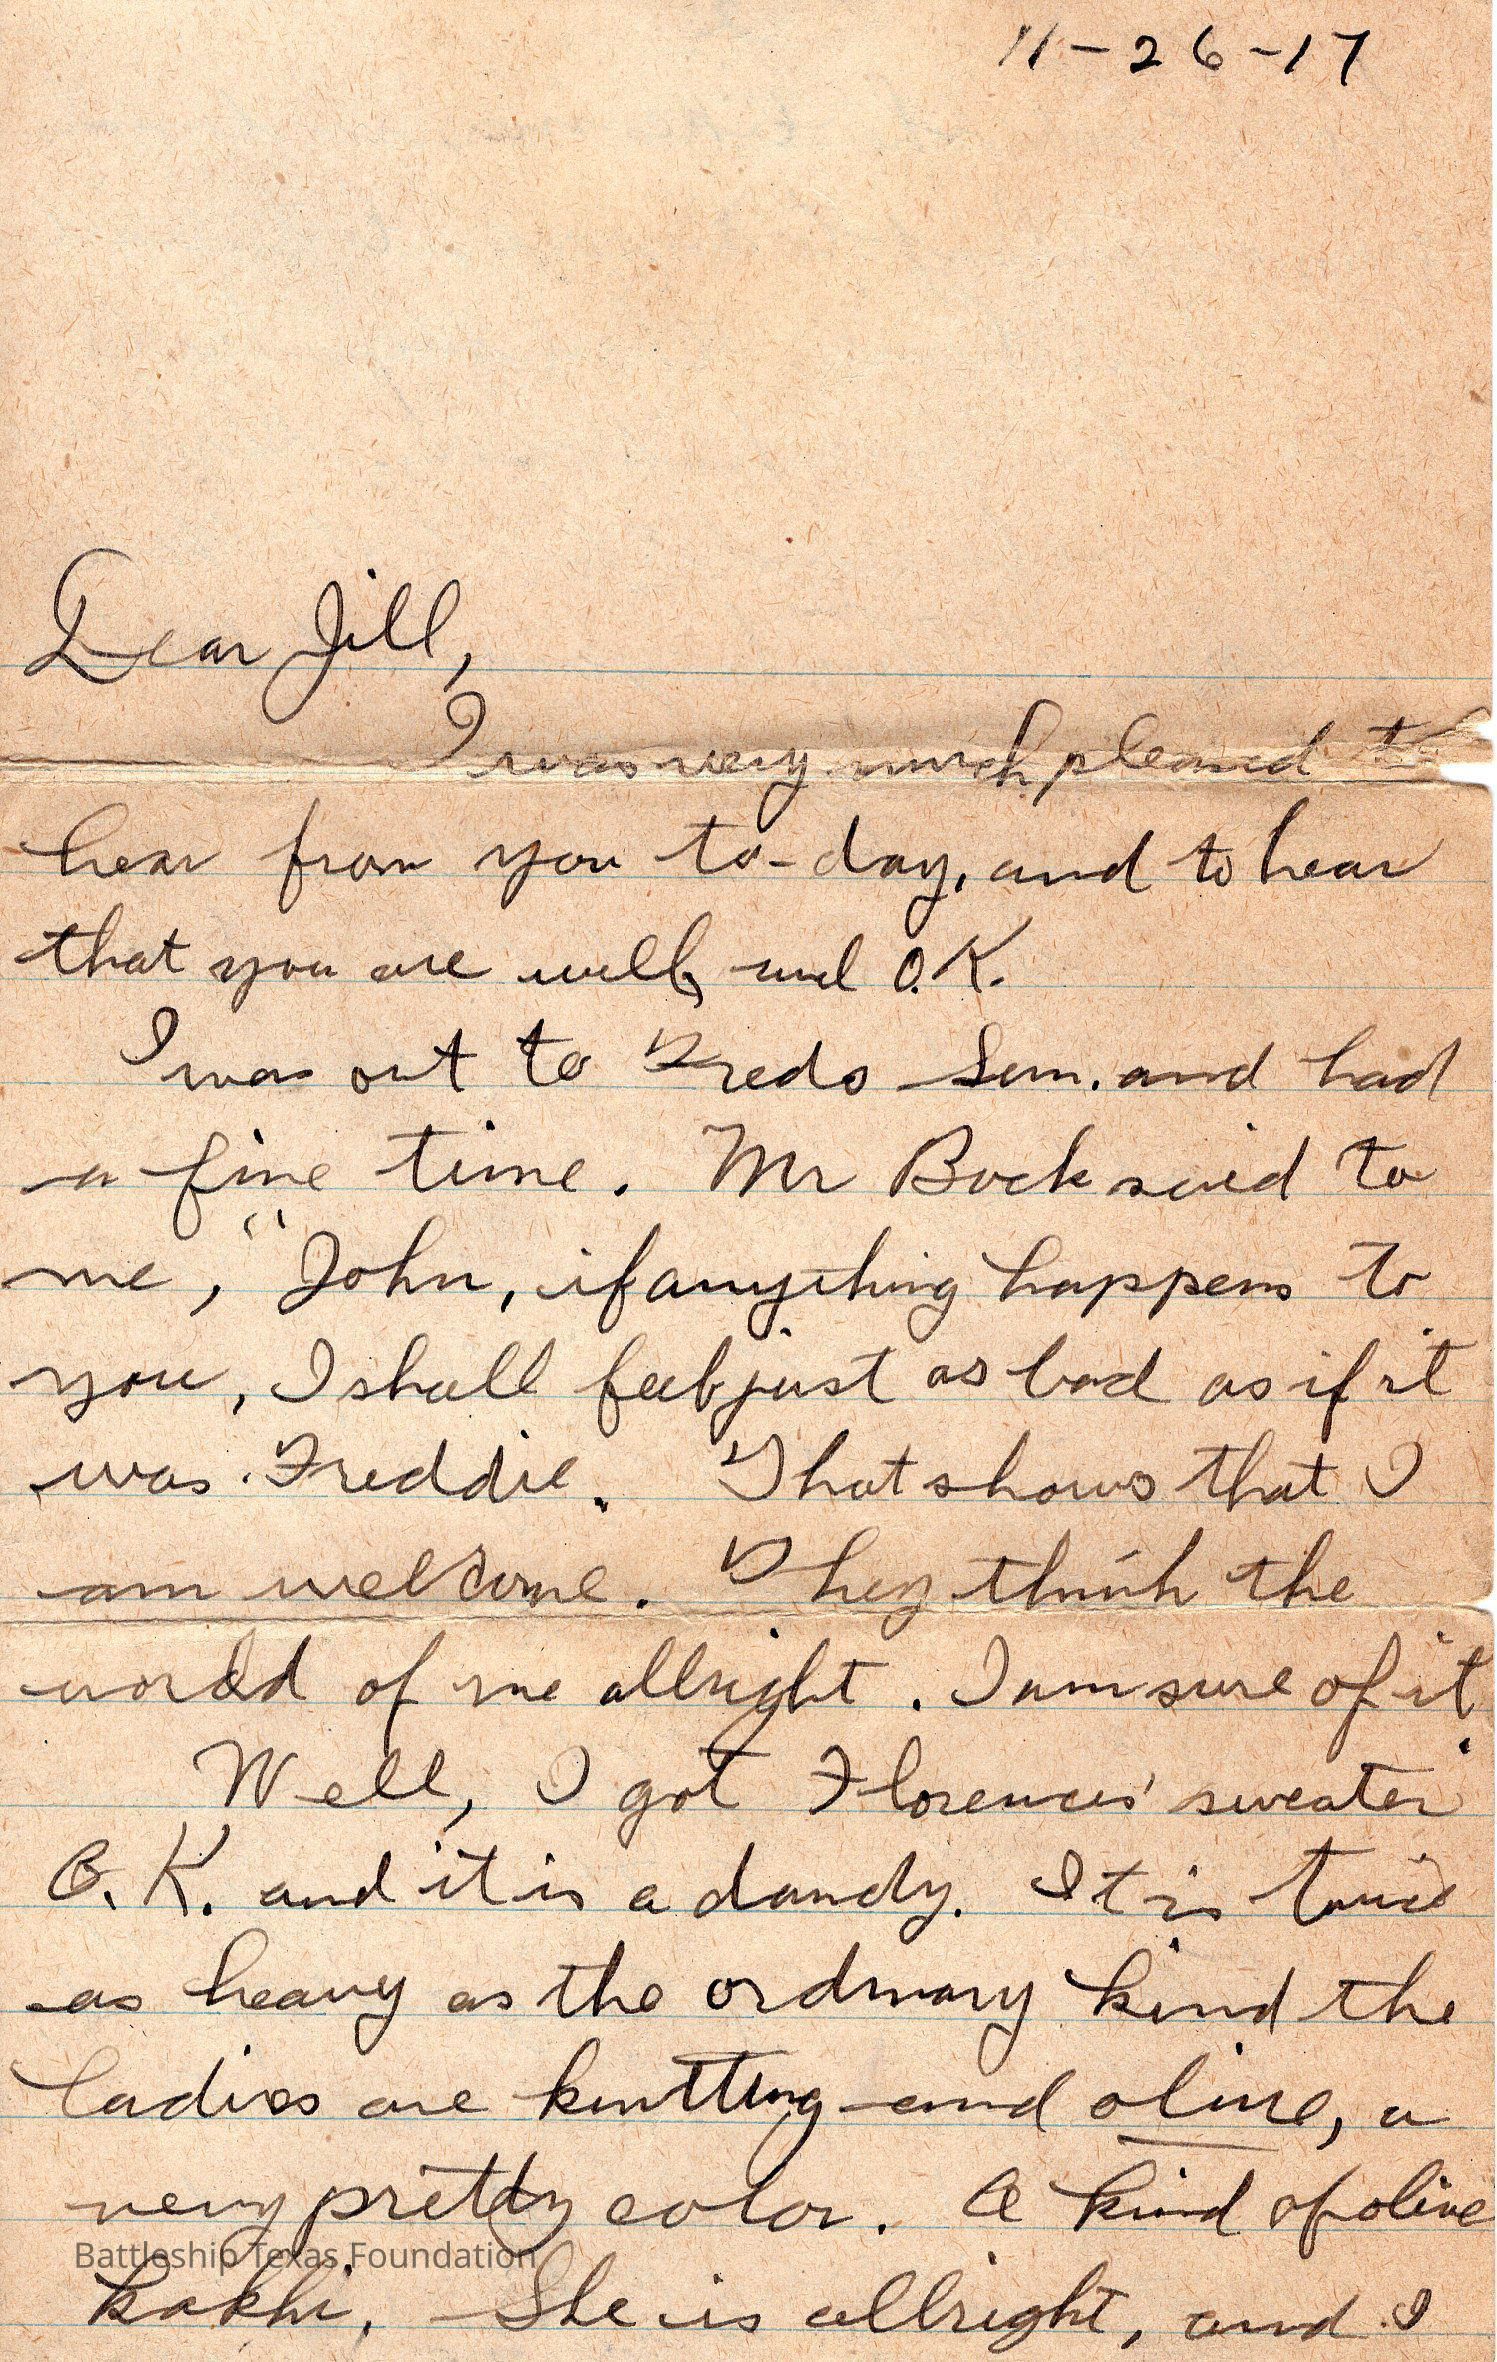 11-26-17
Dear Jill,
I was very much pleased to
hear from you to-day, and to hear
that you are well, and O.K.
I was out to Freds Sun. and had
a fine time. Mr Bock said to
me, "John, if anything happens to
you, I shall feel just as bad as if it
was Freddie. That shows that I
am welcome. They think the
world of me allright. I am sure of it.
Well, I got Florences' sweater
O.K. and it is a dandy. It is twice
as heavy as the ordinary kind the
ladies are knitting and olive, a
very pretty color. A kind of olive
Battleship Texas Foundation
kakhi. She is allright, and I